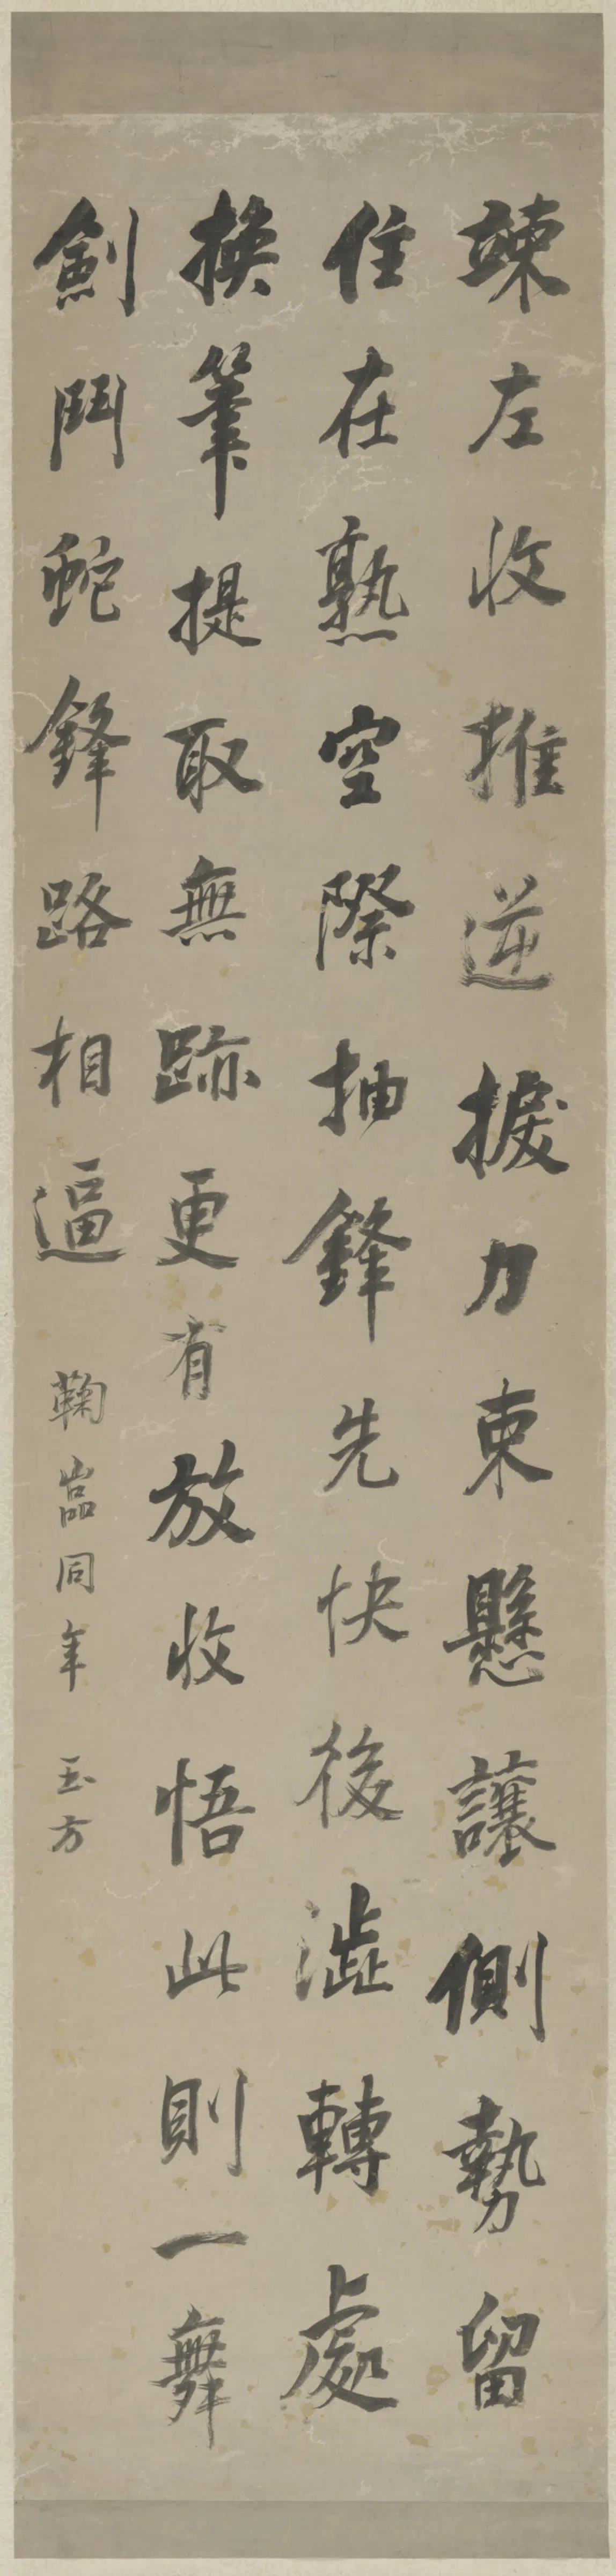 竦左收推逆捩力束懸讓側勢留
住在熟空際抽鋒先快後澁轉處
換筆提取無跡更有放收悟此則一舞
劍鬥蛇鋒路相逼
鞠嵓同年 玉方